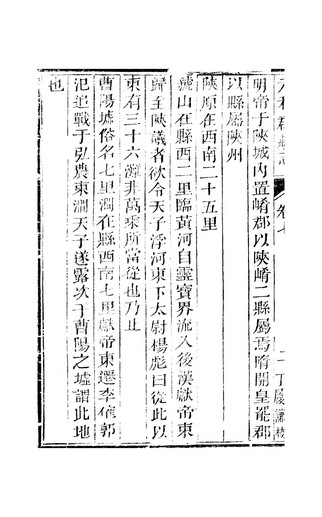 明帝于陝城內置崤郡以陝崤二縣屬焉隋開皇罷郡
以縣屬陝州
陝原在西南二十五里
虢山在縣西二里臨黃河自靈寶界流入後漢獻帝東
歸至陝議者欲令天子浮河東下太尉楊彪曰從此以
東有三十六灘非萬乘所當從也乃止
曹陽墟俗名七里澗在縣西南七里獻帝東遷李傕郭
汜追戰于弘農東澗天子遂露次于曹陽之墟謂此地
也
卷七
二